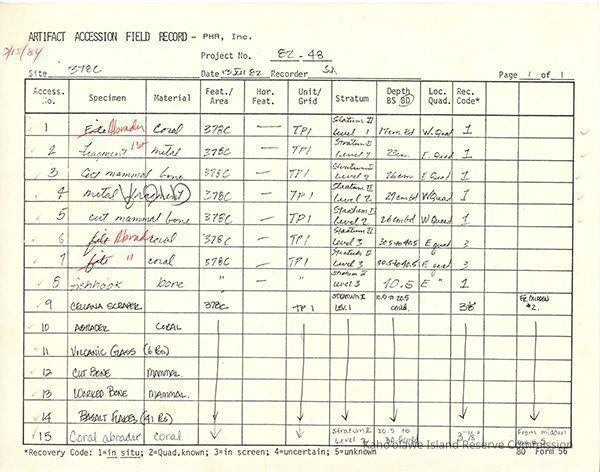 ARTIFACT ACCESSION FIELD RECORD - PHR, Inc.
2/15/84
Project No. 82 - 48
Site 378C Date 13 VII 82 Recorder
Page 1 of 1
Access. No. Specimen Material Feat./Area Hor. Feat. Unit/Grid Stratum Depth BS BD Loc. Quad. Rec. Code*
1 File Abrader coral 378C — TP1 Stratum II Level 1 17cm Bd W. Quad 1
2 fragment metal 378C — TP1 Stratum II Level 2 23cm E. Quad 1
3 cut mammal bone 378C — TP1 Stratum II Level 2 26cm E Quad 1
4 metal fragment 378C — TP1 Stratum II Level 2 29cmbd W Quad 1
5 cut mammal bone 378C — TP1 Stratum II Level 2 26cmbd W Quad 1
6 file Abrader coral 378C — TP1 Stratum II Level 3 30.5 to 40.5 E quad 3
7 file " coral 378C — TP1 Stratum II Level 3 30.5 to 40.5 E quad 3
8 fishhook bone " — " Stratum II Level 3 40.5 E " 1
9 CELLANA SCRAPER 378C TP1 STRATUM II LEV. 1 10.5 to 20.5 cmbd. 3 FE. MIDDEN #2.
10 ABRADER CORAL
11 VOLCANIC GLASS (6 BS)
12 CUT BONE MAMMAL
13 WORKED BONE MAMMAL.
14 BASALT FLAKES (41 BS)
15 Coral abrader coral Stratum II Level 2 20.5 to 30.5 3 From midden
*Recovery Code: 1=in situ; 2=Quad.known; 3=in screen; 4=uncertain; 5=unknown 80 Form 56
Kahoʻolawe Island Reserve Commission